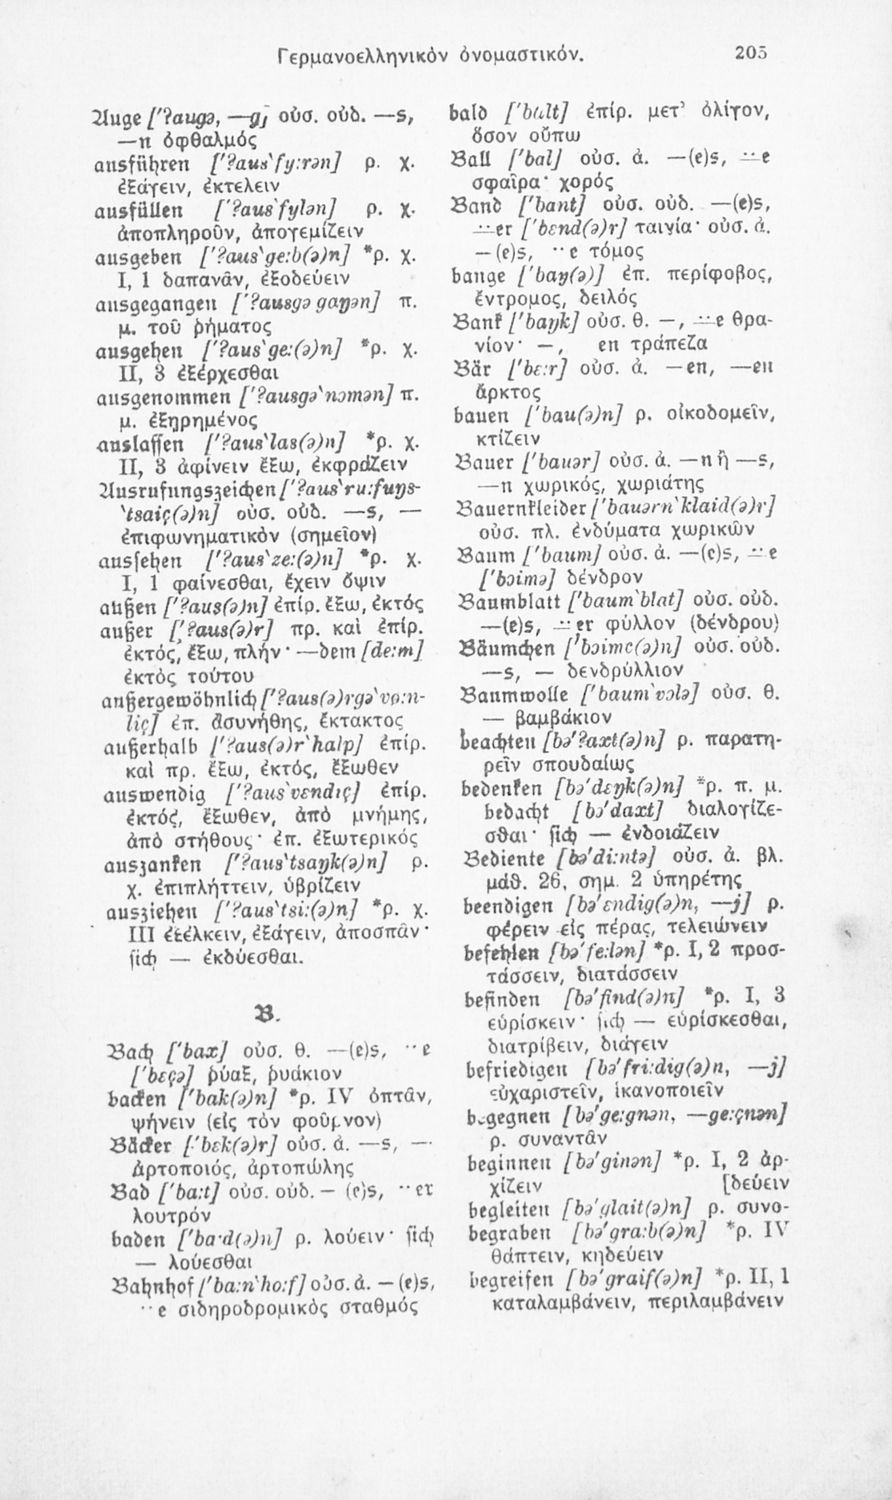 Γερμανοελληνικὸν ὀνομαστικόν. 205
Auge ['ʔaugə, —g] οὐσ. οὐδ. —s,
—n ὀφθαλμός
ausführen ['ʔaus'fy:rən] ρ. χ.
ἐξάγειν, ἐκτελεῖν
ausfüllen ['ʔaus'fylən] ρ. χ.
ἀποπληροῦν, ἀπογεμίζειν
ausgeben ['ʔaus'ge:b(ə)n] *ρ. χ.
I, 1 δαπανᾶν, ἐξοδεύειν
ausgegangen ['ʔausgəgaŋən] π.
μ. τοῦ ῥήματος
ausgehen ['ʔaus'ge:(ə)n] *ρ. χ.
II, 3 ἐξέρχεσθαι
ausgenommen ['ʔausgə'nɔmən] π.
μ. ἐξῃρημένος
auslassen ['ʔaus'las(ə)n] *ρ. χ.
II, 3 ἀφίνειν ἔξω, ἐκφράζειν
Ausrufungszeichen ['ʔaus'ru:fuŋs-
'tsaiç(ə)n] οὐσ. οὐδ. —s, —
ἐπιφωνηματικὸν (σημεῖον)
aussehen ['ʔaus'ze:(ə)n] *ρ. χ.
I, 1 φαίνεσθαι, ἔχειν ὄψιν
außen ['ʔaus(ə)n] ἐπίρ. ἔξω, ἐκτός
außer ['ʔaus(ə)r] πρ. καὶ ἐπίρ.
ἐκτός, ἔξω, πλήν· —dem [de:m]
ἐκτὸς τούτου
außergewöhnlich ['ʔaus(ə)rgə'vø:n-
liç] ἐπ. ἀσυνήθης, ἔκτακτος
außerhalb ['ʔaus(ə)r'halp] ἐπίρ.
καὶ πρ. ἔξω, ἐκτός, ἔξωθεν
auswendig ['ʔaus'vɛndiç] ἐπίρ.
ἐκτός, ἔξωθεν, ἀπὸ μνήμης,
ἀπὸ στήθους· ἐπ. ἐξωτερικός
auszanken ['ʔaus'tsaŋk(ə)n] ρ.
χ. ἐπιπλήττειν, ὑβρίζειν
ausziehen ['ʔaus'tsi:(ə)n] *ρ. χ.
III ἐξέλκειν, ἐξάγειν, ἀποσπᾶν·
sich — ἐκδύεσθαι.
B.
Bach ['bax] οὐσ. θ. —(e)s, ¨e
['bɛçə] ῥύαξ, ρυάκιον
backen ['bak(ə)n] *ρ. IV ὀπτᾶν,
ψήνειν (εἰς τὸν φοῦρνον)
Bäcker ['bɛk(ə)r] οὐσ. ἀ. —s, —
ἀρτοποιός, ἀρτοπώλης
Bad ['ba:t] οὐσ. οὐδ. — (e)s, ¨er
λουτρόν
baden ['ba·d(ə)n] ρ. λούειν· sich
— λούεσθαι
Bahnhof ['ba:n'ho:f] οὐσ. ἀ. — (e)s,
¨e σιδηροδρομικὸς σταθμός
bald ['balt] ἐπίρ. μετ' ὀλίγον,
ὅσον οὔπω
Ball ['bal] οὐσ. ἀ. —(e)s, ¨e
σφαῖρα· χορός
Band ['bant] οὐσ. οὐδ. —(e)s,
¨er ['bɛnd(ə)r] ταινία· οὐσ. ἀ.
—(e)s, ¨e τόμος
bange ['baŋ(ə)] ἐπ. περίφοβος,
ἔντρομος, δειλός
Bank ['baŋk] οὐσ. θ. —, ¨e θρα-
νίον· —, en τράπεζα
Bär ['bɛ:r] οὐσ. ἀ. —en, —en
ἄρκτος
bauen ['bau(ə)n] ρ. οἰκοδομεῖν,
κτίζειν
Bauer ['bauər] οὐσ. ἀ. —n ἢ —s,
—n χωρικός, χωριάτης
Bauernkleider ['bauərn'klaid(ə)r]
οὐσ. πλ. ἐνδύματα χωρικῶν
Baum ['baum] οὐσ. ἀ. —(e)s, ¨e
['bɔimə] δένδρον
Baumblatt ['baum'blat] οὐσ. οὐδ.
—(e)s, ¨er φύλλον (δένδρου)
Bäumchen ['bɔimç(ə)n] οὐσ. οὐδ.
—s, — δενδρύλλιον
Baumwolle ['baum'vɔlə] οὐσ. θ.
— βαμβάκιον
beachten [bə'ʔaxt(ə)n] ρ. παρατη-
ρεῖν σπουδαίως
bedenken [bə'dɛŋk(ə)n] *ρ. π. μ.
bedacht [bə'daxt] διαλογίζε-
σθαι· sich — ἐνδοιάζειν
Bediente [bə'di:ntə] οὐσ. ἀ. βλ.
μάθ. 26, σημ. 2 ὑπηρέτης
beendigen [bə'ɛndig(ə)n, —j] ρ.
φέρειν εἰς πέρας, τελειώνειν
befehlen [bə'fe:lən] *ρ. I, 2 προσ-
τάσσειν, διατάσσειν
befinden [bə'find(ə)n] *ρ. I, 3
εὑρίσκειν· sich — εὑρίσκεσθαι,
διατρίβειν, διάγειν
befriedigen [bə'fri:dig(ə)n, —j]
εὐχαριστεῖν, ἱκανοποιεῖν
begegnen [bə'ge:gnən, —ge:çnən]
ρ. συναντᾶν
beginnen [bə'ginən] *ρ. I, 2 ἀρ-
χίζειν [δεύειν
begleiten [bə'glait(ə)n] ρ. συνο-
begraben [bə'gra:b(ə)n] *ρ. IV
θάπτειν, κηδεύειν
begreifen [bə'graif(ə)n] *ρ. II, 1
καταλαμβάνειν, περιλαμβάνειν